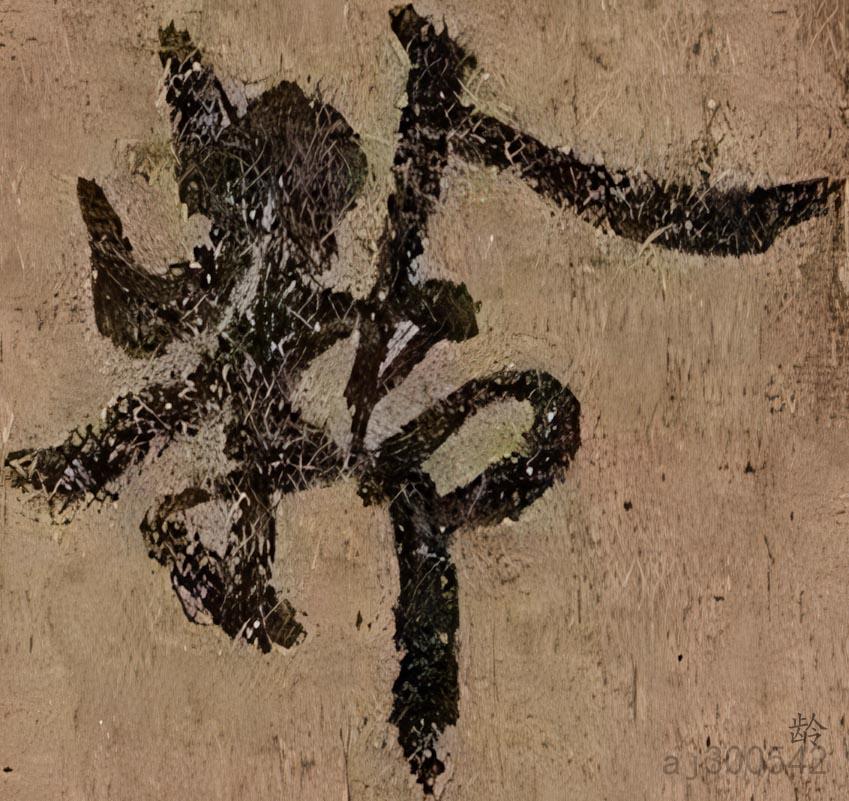 龄
龄
aj300542